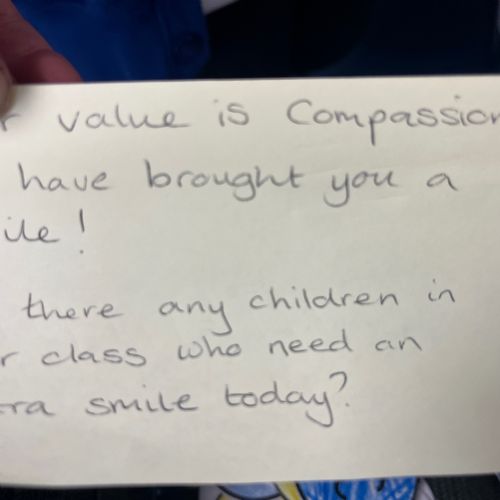 r value is Compassion
have brought you a
ile!
there any children in
r class who need an
tra smile today?